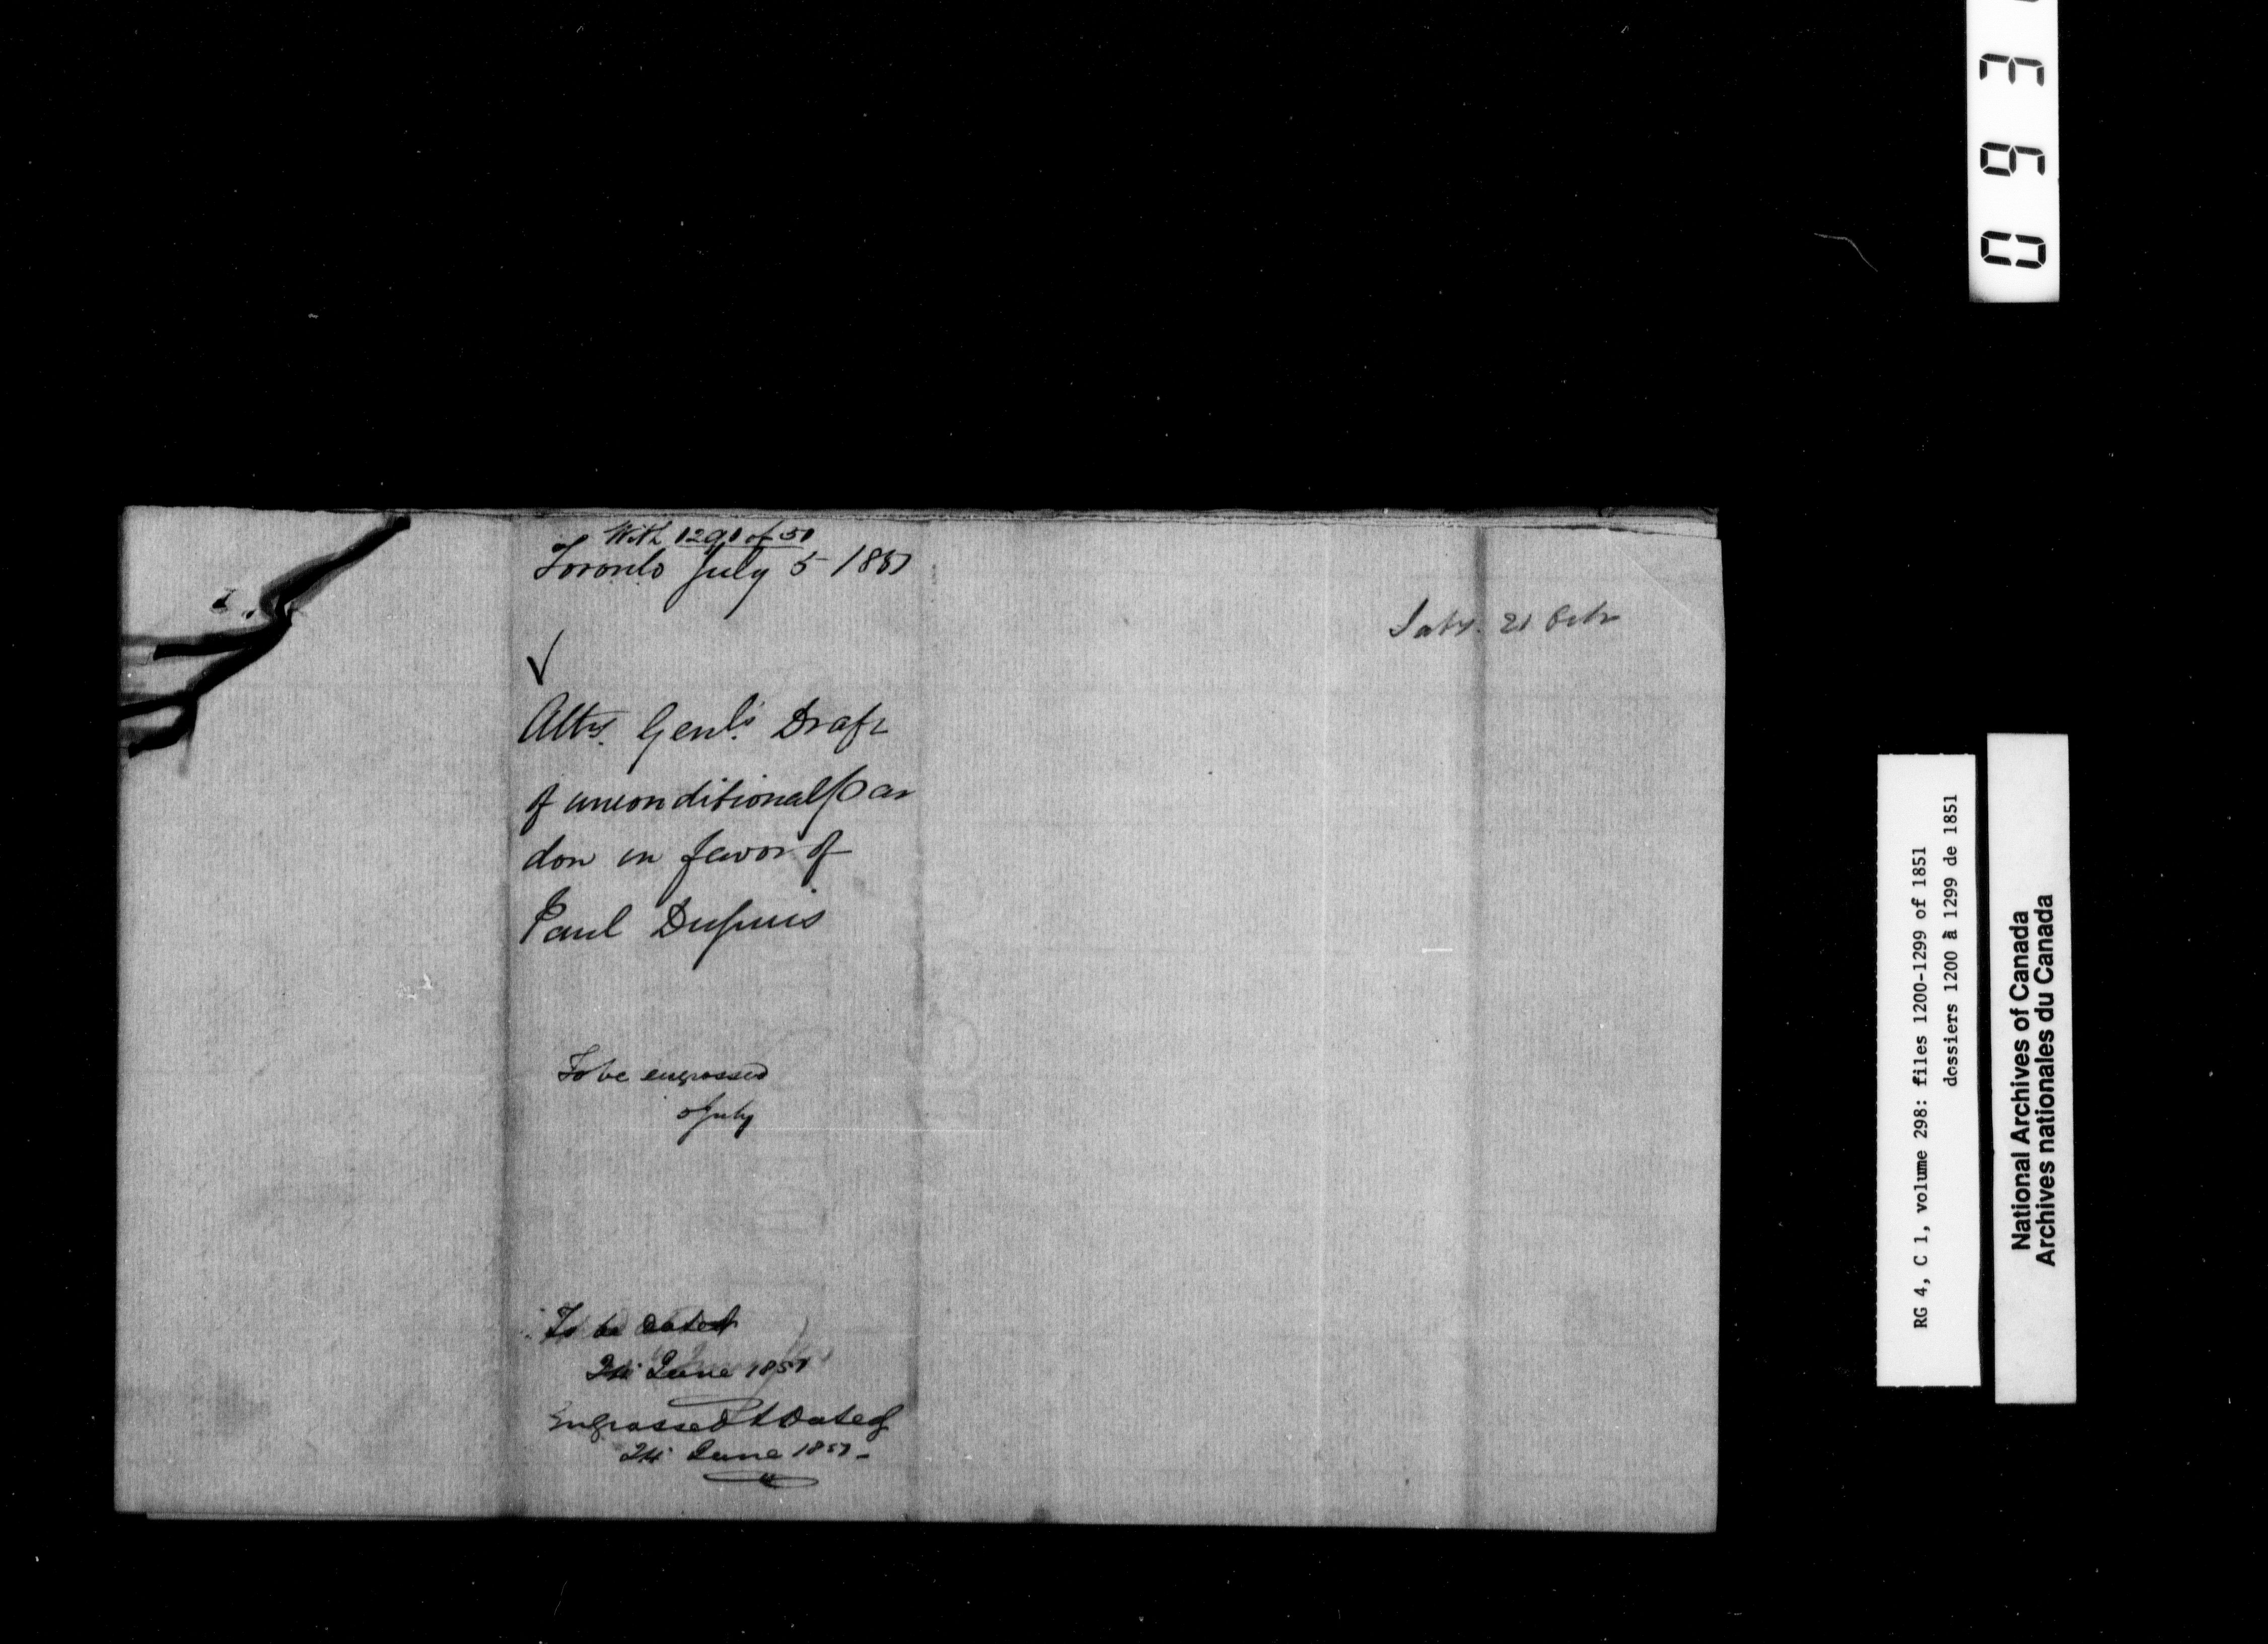 With 1291 of 51
Toronto July 5 1851
Atty. Genl's. Draft
of unconditional Par
don in favor of
Paul Dupuis
To be engrossed
5 July
To be dated
24 June 1851
Engrossed & dated
24 June 1851 -
21 Octr
0 9 3
RG 4, C 1, volume 298: files 1200-1299 of 1851
dossiers 1200 à 1299 de 1851
National Archives of Canada
Archives nationales du Canada